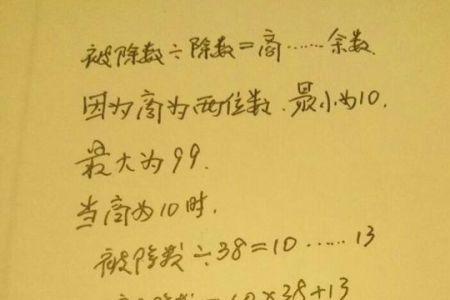 被除数÷除数=商……余数.
因为商为两位数.最小为10.
最大为99.
当商为10时.
被除数÷38=10……13
被除数=10×38+13